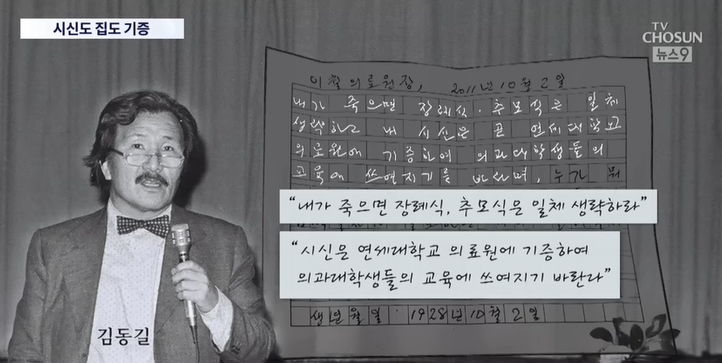 시신도 집도 기증
TV
CHOSUN
뉴스9
이철의료원장, 2011년 10월 2일
내가 죽으면 장례식, 추모식은 일체
생략하고 내 시신은 곧 연세대학교
의료원에 기증하여 의과대학생들의
교육에 쓰여지기를 바라며, 누가 뭐
“내가 죽으면 장례식, 추모식은 일체 생략하라”
“시신은 연세대학교 의료원에 기증하여
의과대학생들의 교육에 쓰여지기 바란다”
생년월일 : 1928년 10월 2일
김동길